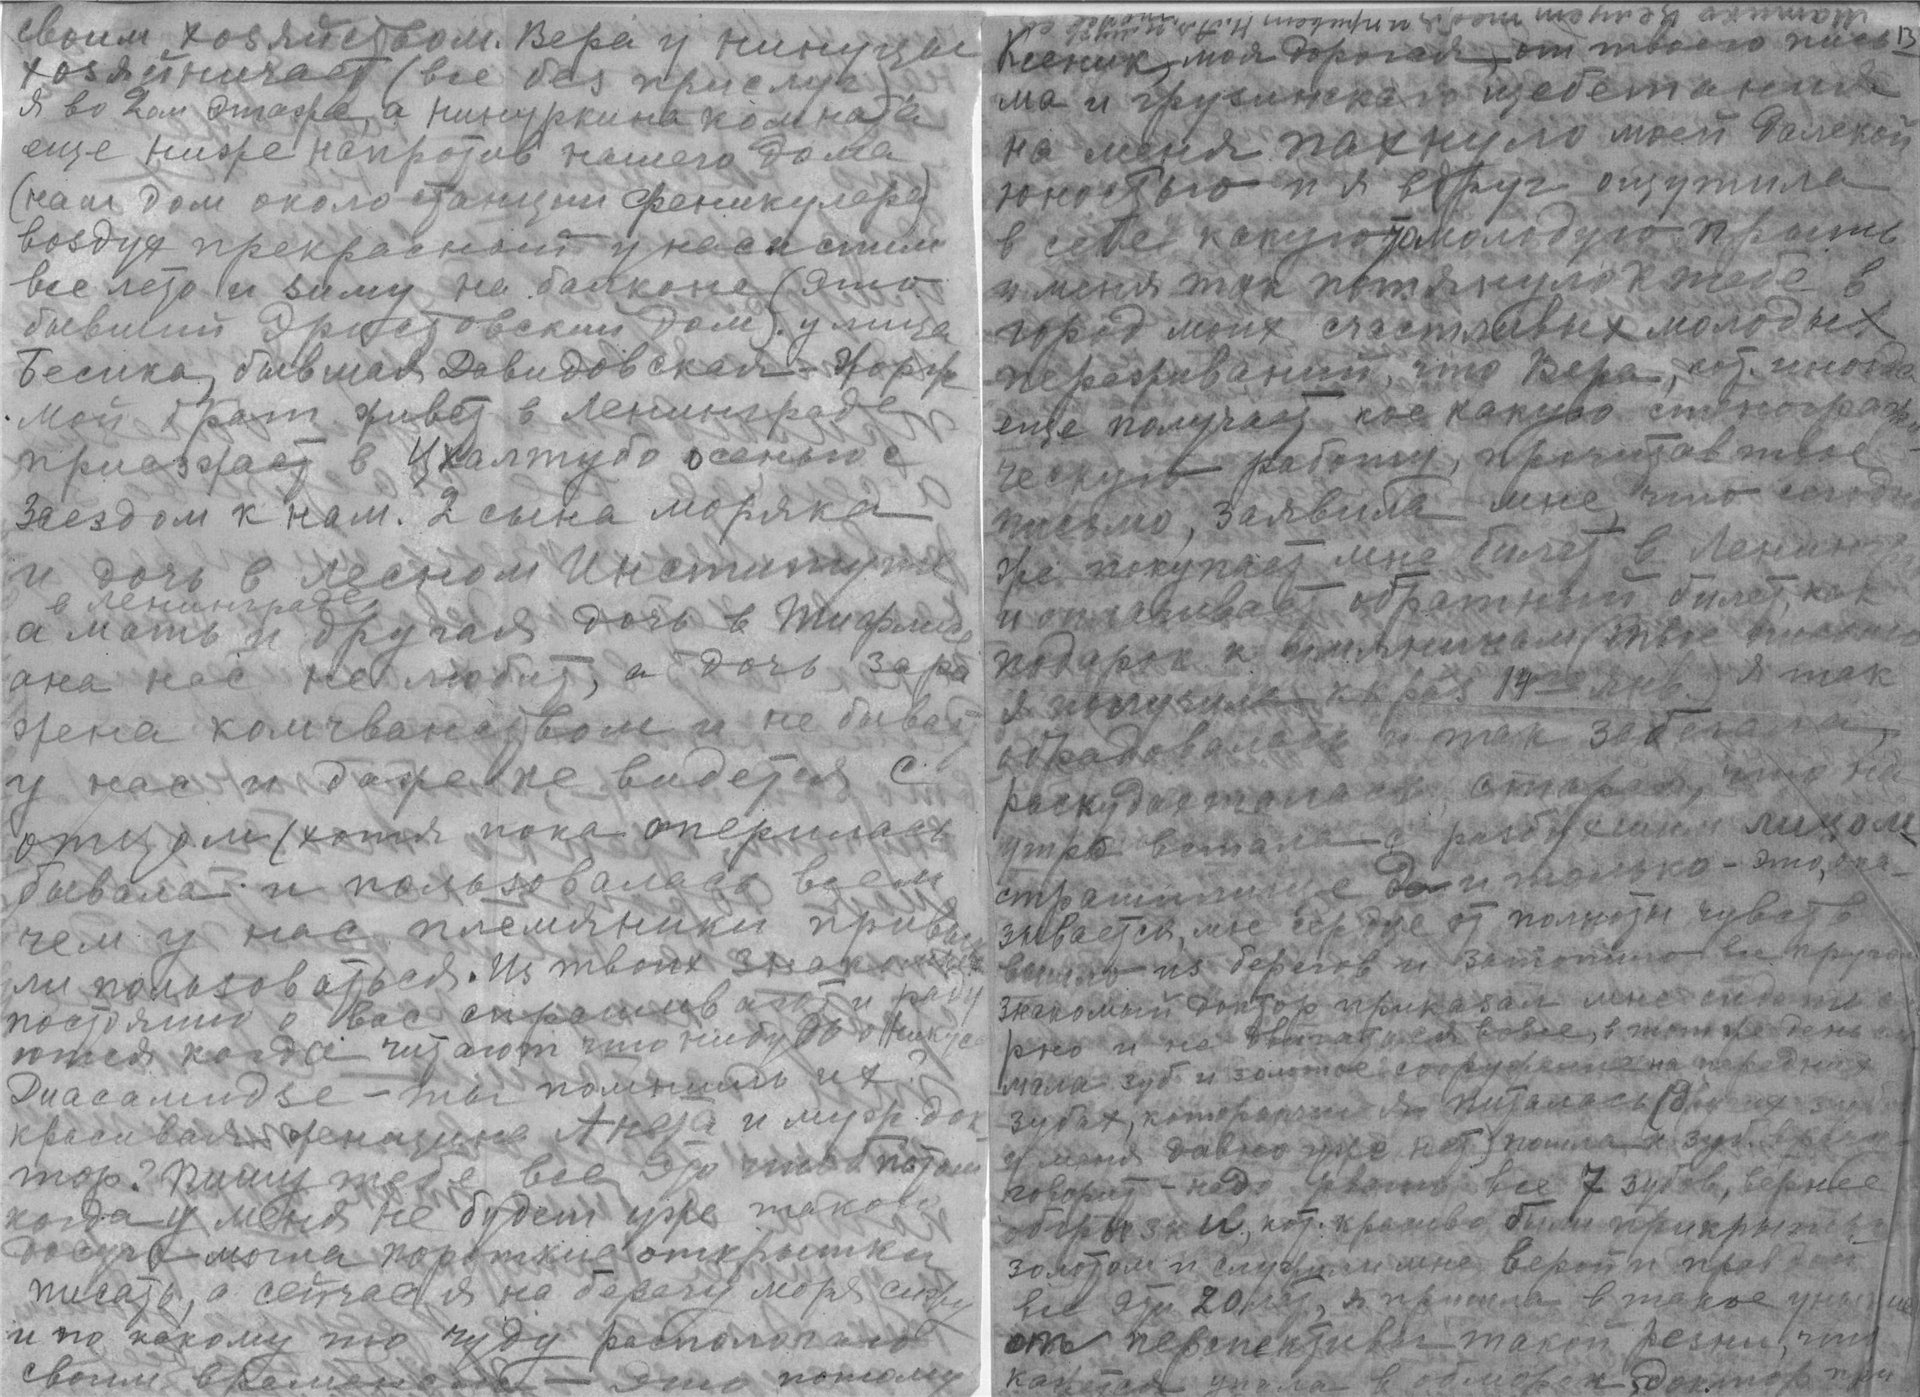 своим хозяйством. Вера у Нинуцы
хозяйничает (все без прислуг)
я во 2ом этаже, а Нинуркина комната
еще ниже напротив нашего дома
(наш дом около станции феникулера)
воздух прекрасный у нас и спим
все лето и зиму на балконе (это
бывший Эристовский дом). улица
Бесика, бывшая Давидовская – Жорж
мой брат живет в Ленинграде
приезжает в Цхалтубо осенью с
заездом к нам. 2 сына моряка
и дочь в лесном Институте
в Ленинграде,
а мать и другая дочь в Тифлисе
она нас не любит, а дочь зара
жена комчванством и не бывает
у нас и даже не видется с
отцом (хотя пока оперилась
бывала и пользовалась всем
чем у нас племяники привык
ли пользоваться. Из твоих знакомых
постоянно о вас спрашивают и раду
ются когда читают что нибудь о Никусе
Диасамидзе – ты помнишь их?
красивая женщина Анета и муж док
тор? Пишу тебе все это чтоб потом
когда у меня не будет уже такого
досуга могла короткие открытки
писать, а сейчас я на берегу моря сижу
и по какому то чуду располагаю
своим временем – это потому
13
Ксеник, моя дорогая, от твоего пись
ма и грузинскаго щебетания
на меня пахнуло моей далекой
юностью и я вдруг ощутила
в себе какую то молодую прыть
и меня так потянуло к тебе в
город моих счастливых молодых
переживаний, что Вера, кот. иногда
еще получает кое какую стенографи
ческую работу, прочитав твое
письмо, заявила мне, что сегодня
же покупает мне билет в Ленинград
и оплачивает обратный билет, как
подарок к имянинам (твое письмо
я получила как раз 14го янв.) я так
обрадовалась и так забегала,
раскудахталась, старая, что на
утро встала с разбухшим лицом
страшилище да и только – это, ока-
зывается, мое сердце от полноты чувств
вышло из берегов и затопило все кругом
знакомый доктор приказал мне сидеть см
рно и не двигаться вовсе, в тот же день сло
мала зуб и золотое сооружение на передних
зубах, которыми я питалась (
у меня давно уже нет) пошла к зуб. врачу
говорит – надо рвать все 7 зубов, вернее
обрызки, кот. красиво были прикрыты
золотом и служили мне верой и правдой
все эти 20 лет, я пришла в такое уныние
от перспективы такой резни, что
кажется упала в обморок доктор при